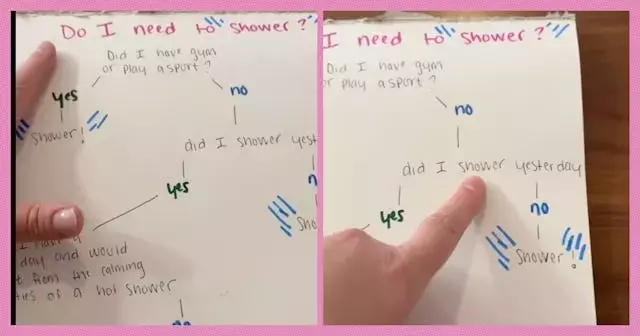 Do I need to shower?
Did I have gym
or play a sport?
yes
no
Shower!
did I shower
yes
day and would
from the calming
of a hot shower
I need to shower?
Did I have gym
or play a sport?
no
did I shower yesterday
yes
no
Shower!